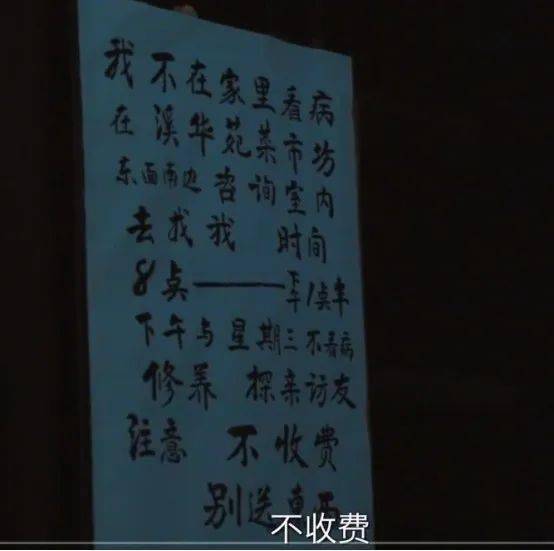 我不在家里看病
在溪华苑菜市场
东面南边咨询室内
去找我 时间
8点——下午1点半
下午与星期三不看病
修养 探亲访友
注意 不收费
别送东西
不收费